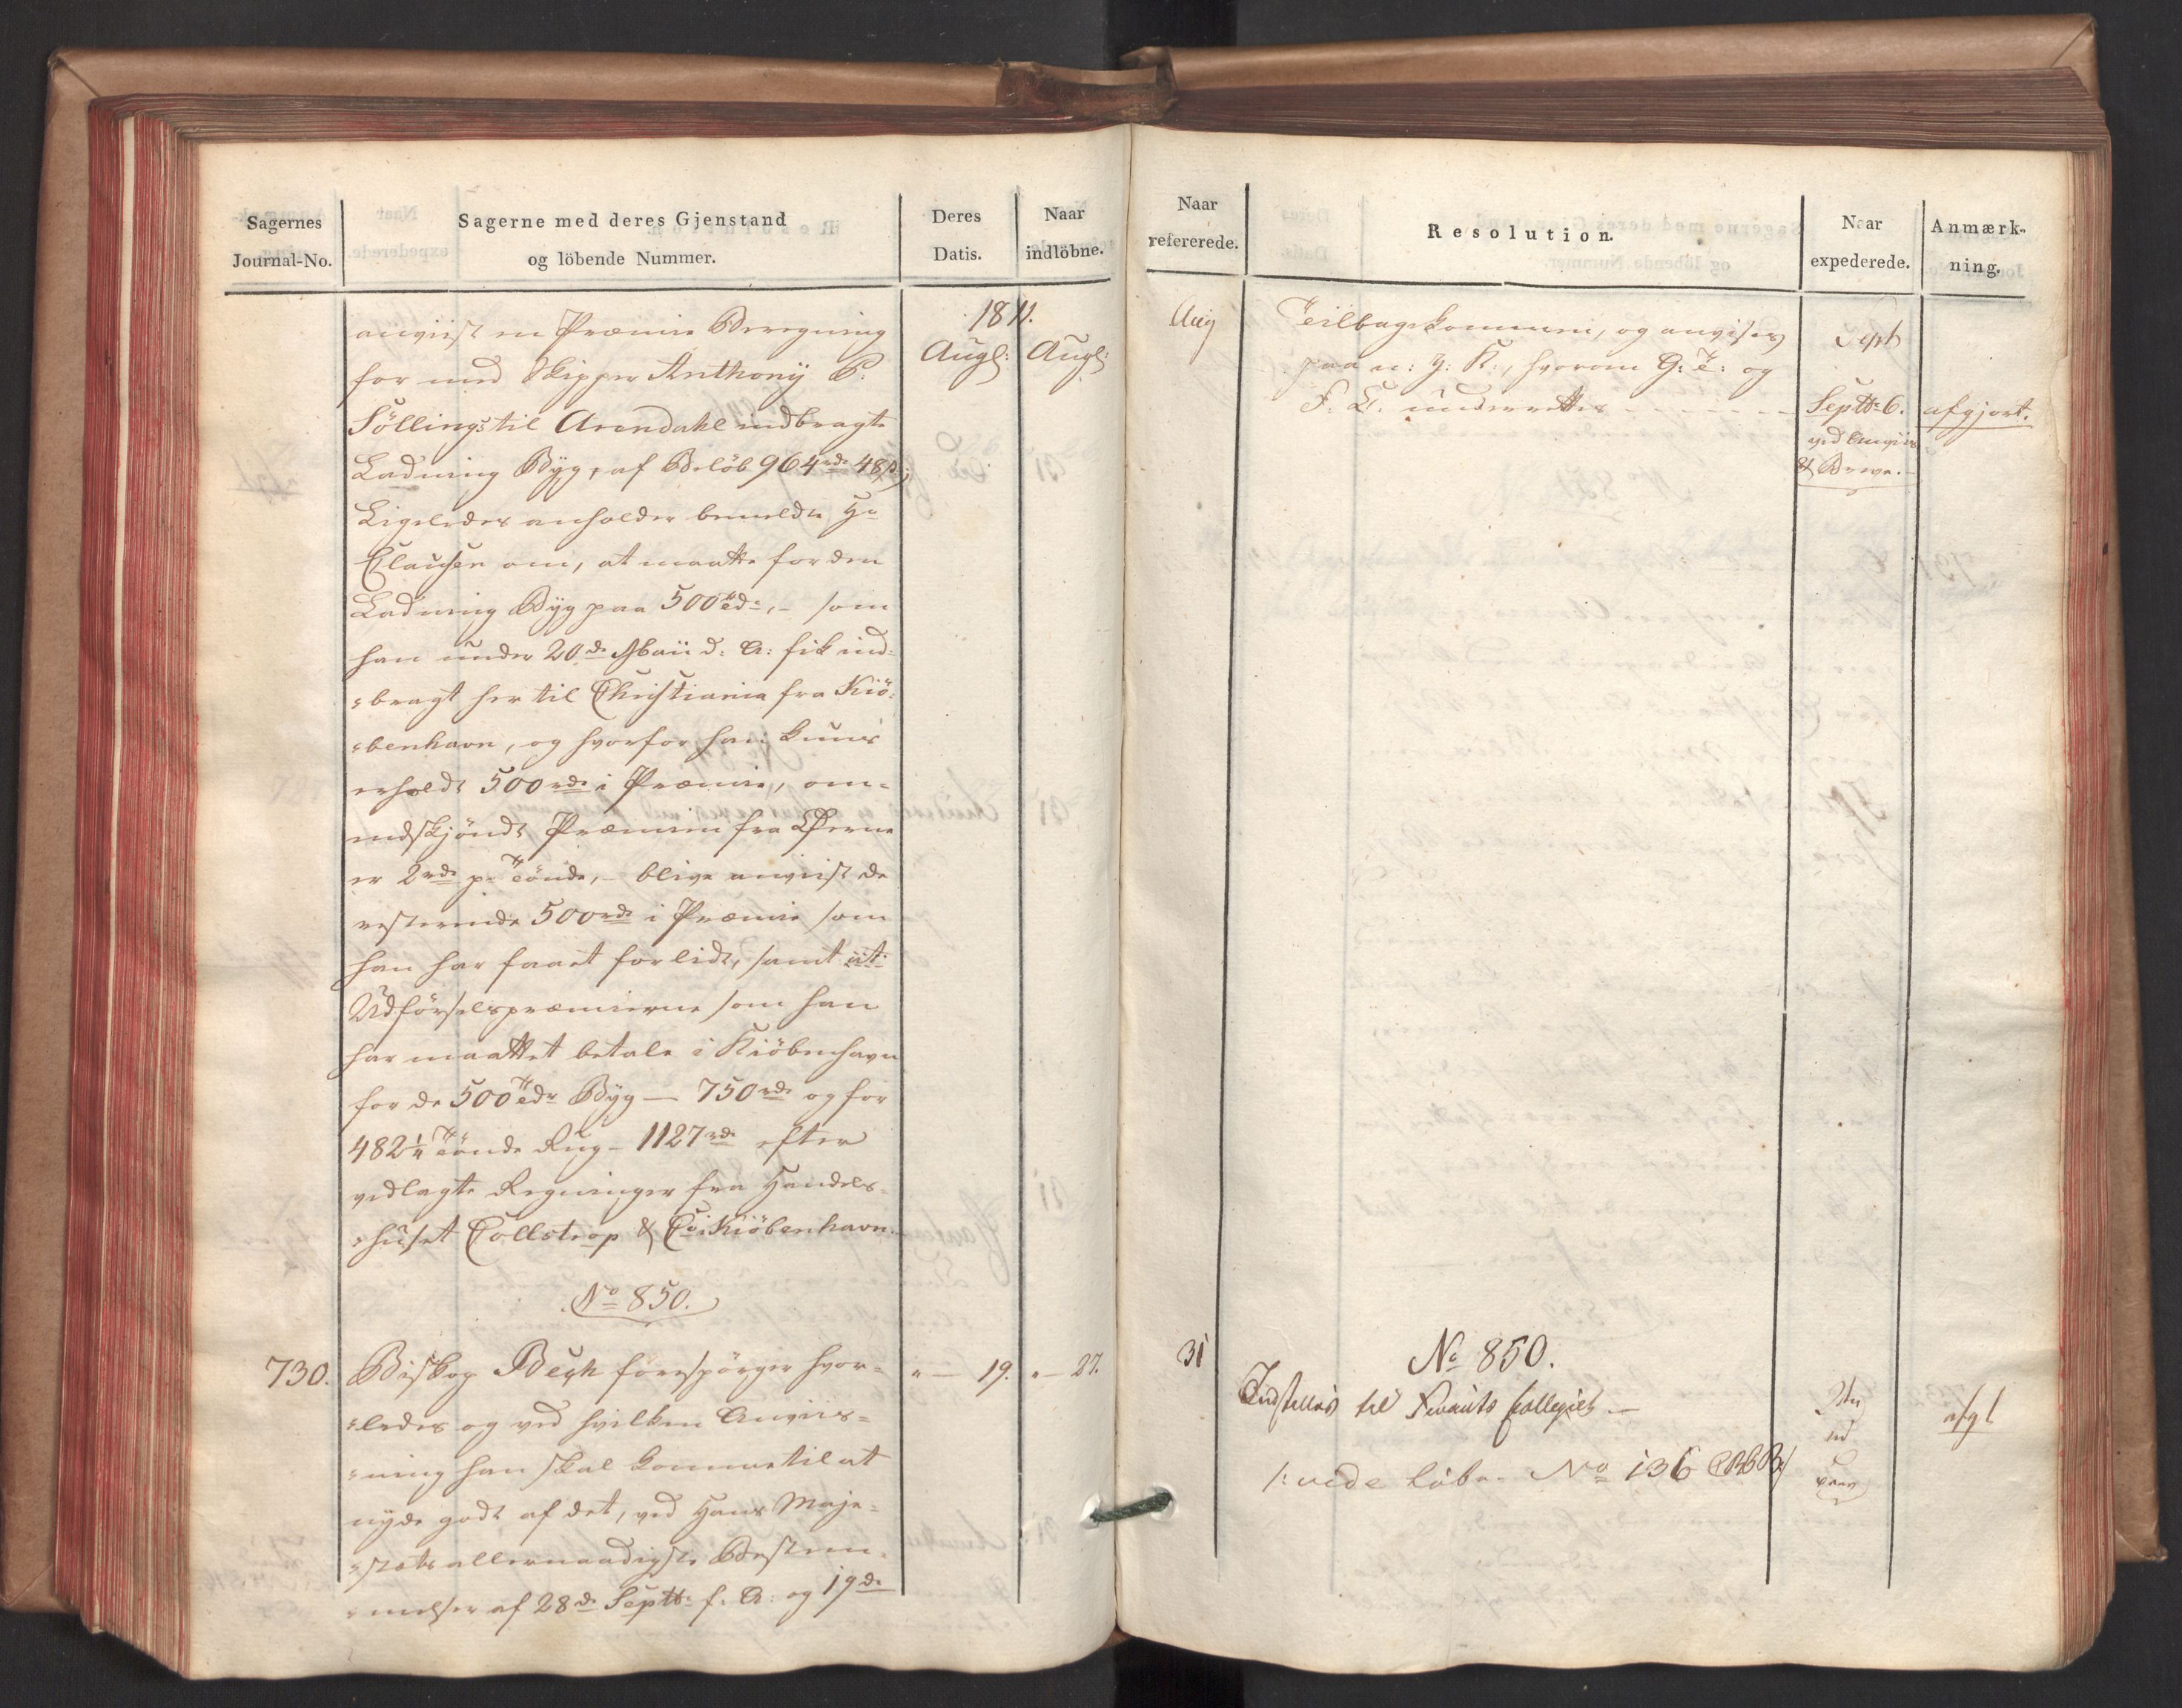 Sagernes
Journal-No.
Sagerne med deres Gjenstand
og löbende Nummer.
Deres
Datis.
Naar
indlöbne.
1811.
Augl:
Augl:
anviist en Præmie Beregning
for med Skipper Anthonÿ P:
Söllings til Arendahl indbragte
Ladning Bÿg, af Beløb 964 rdr 48 ß;
Ligeledes anholder bemeldte Hr
Clausen om, at maatte for den
Ladning Bÿg paa 500 Tdr, - som
han under 20de Maii d: A: fik ind=
=bragt her til Christiania fra Kiö=
=benhavn, og hvorfor han kuns
erholdt 500 rdr i Præmie, om=
endskjöndt Præmien fra Öerne
er 2 rdr pr Tönde, - blive anviist de
resterende 500 rdr i Præmie som
han har faaet for lidt, samt
Udförselspræmierne som han
har maattet betale i Kiöbenhavn
for de 500 Tdr Bÿg — 750 rdr og for
482¼ Tönde Rug - 1127 rdr efter
vedlagte Regninger fra Handels=
=huset Collstrop & Co i Kiöbenhavn.
No 850.
730.
Biskop Bech forespörger hvor=
=ledes og ved hvilken Anviis=
=ning han skal komme til at
nyde godt af det, ved Hans Maje=
=stæts allernaadigste Bestem=
=melser af 28de Septbr f: A: og 19de
" — 19.
" — 27.
Naar
refererede.
Resolution.
Naar
expederede.
Anmærk-
ning.
Aug
Teilbagekommer, og anvises
paa n: g: K:, hvorom G: T: og
F. C. underrettes - - - - - -
Sept
Septbr 6.
ved Anviis
& Breve.
afgjort.
31
No 850.
Indstilles til Finants Collegiet —
/: vide Løbe No 136
afgl